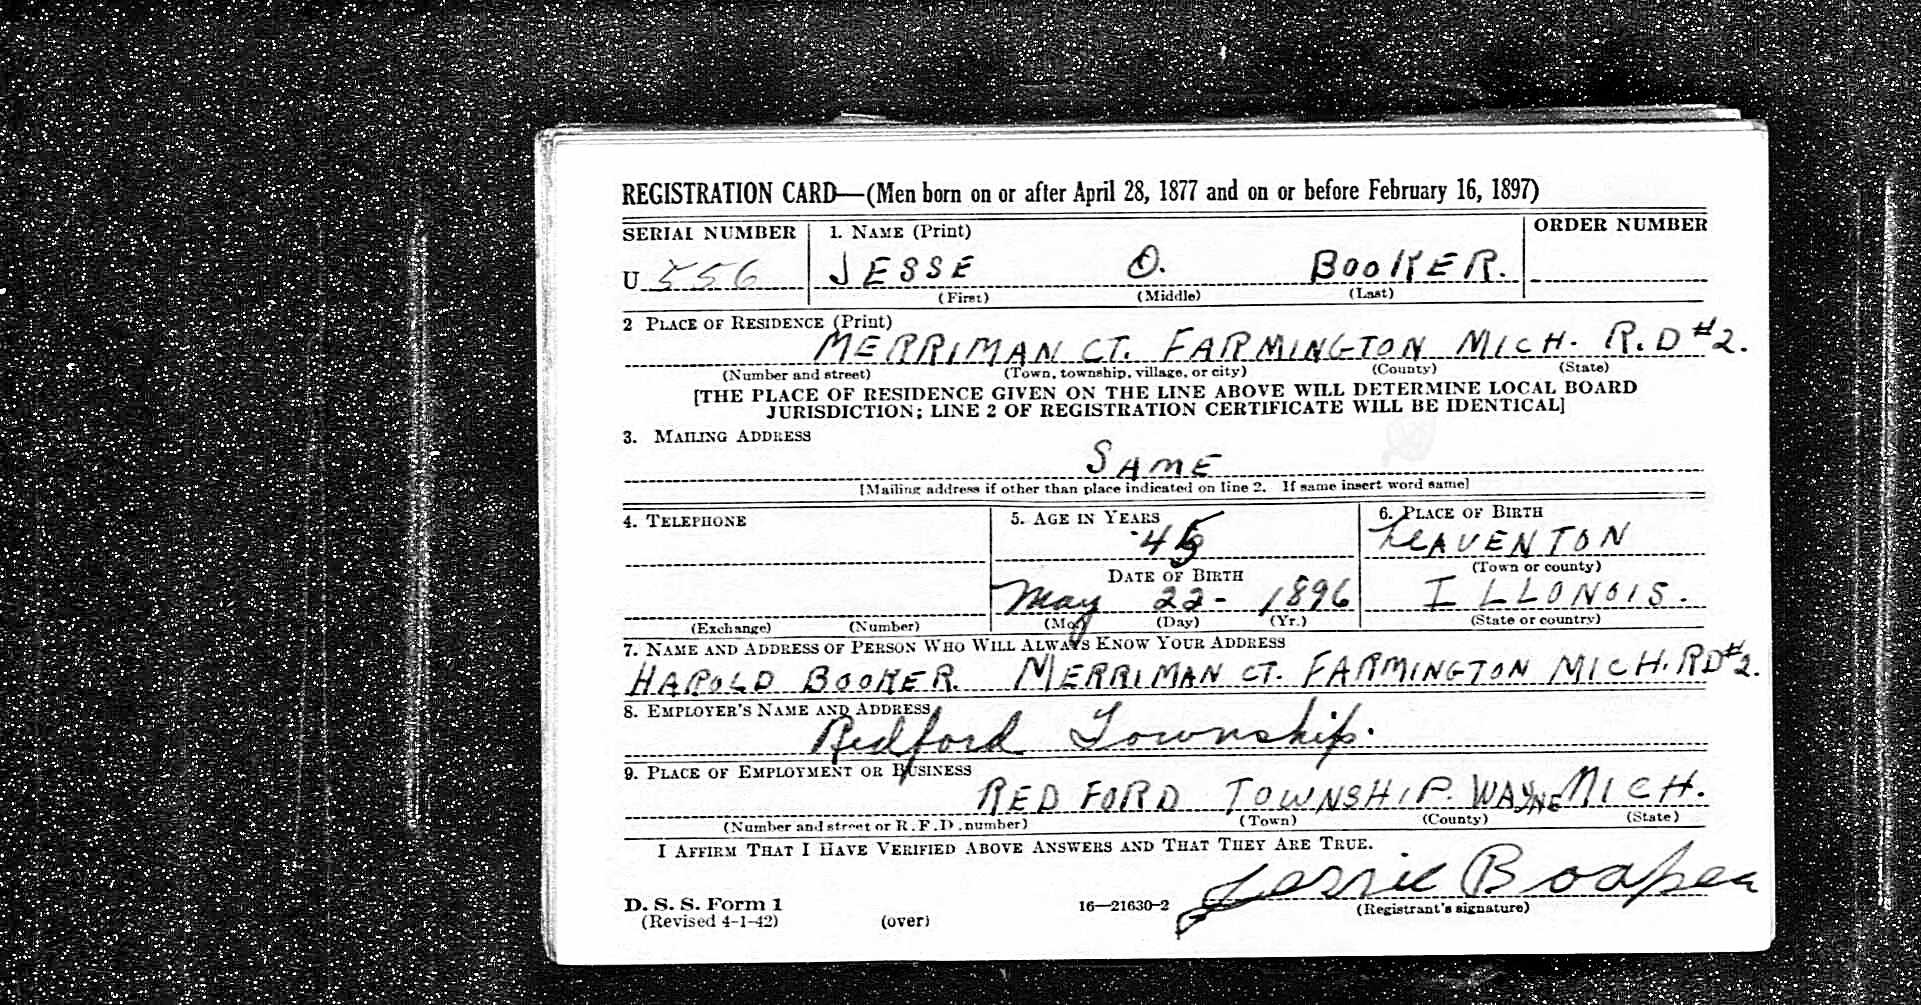 REGISTRATION CARD—(Men born on or after April 28, 1877 and on or before February 16, 1897)
SERIAL NUMBER 1. NAME (Print) ORDER NUMBER
U 556 JESSE O. BOOKER.
(First) (Middle) (Last)
2 PLACE OF RESIDENCE (Print)
MERRIMAN CT. FARMINGTON MICH. R.D #2.
(Number and street) (Town, township, village, or city) (County) (State)
[THE PLACE OF RESIDENCE GIVEN ON THE LINE ABOVE WILL DETERMINE LOCAL BOARD
JURISDICTION; LINE 2 OF REGISTRATION CERTIFICATE WILL BE IDENTICAL]
3. MAILING ADDRESS
SAME
[Mailing address if other than place indicated on line 2. If same insert word same]
4. TELEPHONE 5. AGE IN YEARS 6. PLACE OF BIRTH
45 LEAVENTON
DATE OF BIRTH (Town or county)
May 22- 1896 ILLONOIS.
(Exchange) (Number) (Mo.) (Day) (Yr.) (State or country)
7. NAME AND ADDRESS OF PERSON WHO WILL ALWAYS KNOW YOUR ADDRESS
HAROLD BOOKER. MERRIMAN CT. FARMINGTON MICH. RD #2.
8. EMPLOYER'S NAME AND ADDRESS
Redford Township.
9. PLACE OF EMPLOYMENT OR BUSINESS
REDFORD TOWNSHIP. WAYNE MICH.
(Number and street or R. F. D. number) (Town) (County) (State)
I AFFIRM THAT I HAVE VERIFIED ABOVE ANSWERS AND THAT THEY ARE TRUE.
D. S. S. Form 1
(Revised 4-1-42) (over) 16—21630-2 (Registrant's signature)